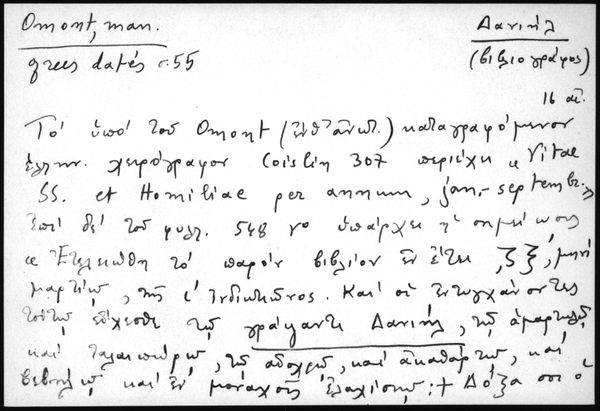 Omont, man.
grecs datés σ. 55
Δανιήλ
(βιβλιογράφος)
16 αἰ.
Τό ὑπό τοῦ Omont (ἔνθ' ἀνωτ.) καταγραφόμενον
ἑλλην. χειρόγραφον Coislin 307 περιέχει «Vitae
SS. et Homiliae per annum, jan.-septembr.»
Ἐπί δέ τοῦ φυλλ. 548 vο ὑπάρχει ἡ σημείωσις
«Ἐτελειώθη τό παρόν βιβλίον ἐν ἔτει ,ζξ', μηνί
μαρτίῳ, τῆς ι' ἰνδικτιῶνος. Καί οἱ ἐντυγχάνοντες
τοῦτῳ εὔχεσθε τῷ γράψαντι Δανιήλ, τῷ ἁμαρτωλῷ
καί ταλαιπώρῳ, τῷ καί ἀκαθάρτῳ, καί
βεβήλῳ καί ἐν μοναχοῖς ἐλαχίστῳ: + Δόξα σοι ὁ